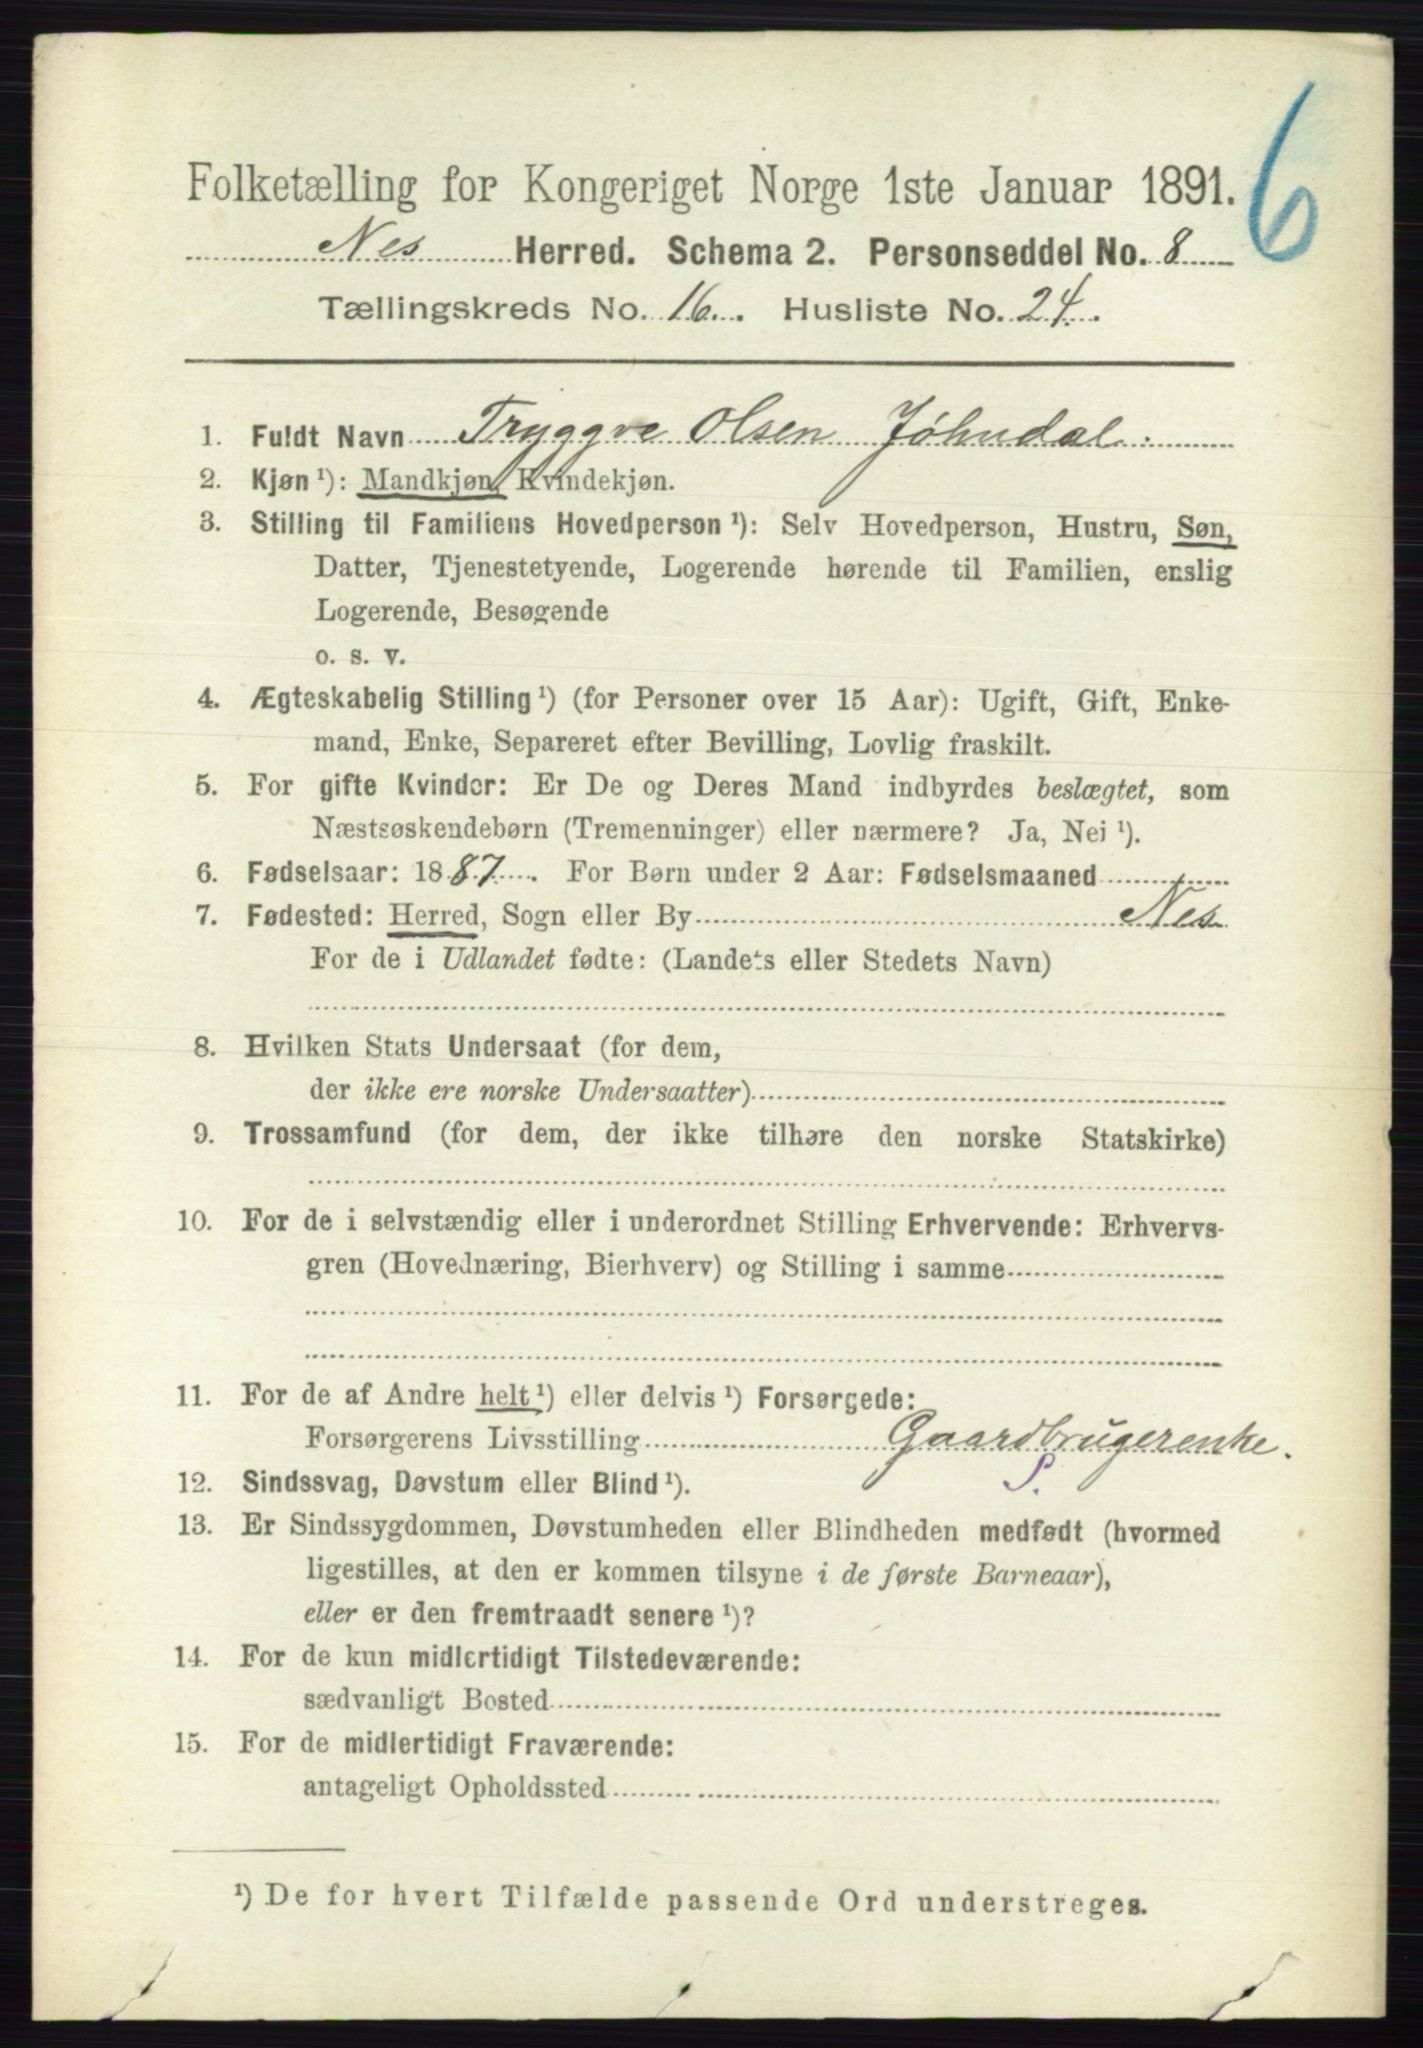 6
Folketælling for Kongeriget Norge 1ste Januar 1891.
Nes Herred. Schema 2. Personseddel No. 8
Tællingskreds No. 16. Husliste No. 24.
1. Fuldt Navn Tryggve Olsen Jøhndal.
2. Kjøn ¹): Mandkjøn, Kvindekjøn.
3. Stilling til Familiens Hovedperson ¹): Selv Hovedperson, Hustru, Søn,
Datter, Tjenestetyende, Logerende hørende til Familien, enslig
Logerende, Besøgende
o. s. v.
4. Ægteskabelig Stilling ¹) (for Personer over 15 Aar): Ugift, Gift, Enke-
mand, Enke, Separeret efter Bevilling, Lovlig fraskilt.
5. For gifte Kvinder: Er De og Deres Mand indbyrdes beslægtet, som
Næstsøskendebørn (Tremenninger) eller nærmere? Ja, Nei ¹).
6. Fødselsaar: 1887. For Børn under 2 Aar: Fødselsmaaned
7. Fødested: Herred, Sogn eller By Nes
For de i Udlandet fødte: (Landets eller Stedets Navn)
8. Hvilken Stats Undersaat (for dem,
der ikke ere norske Undersaatter)
9. Trossamfund (for dem, der ikke tilhøre den norske Statskirke)
10. For de i selvstændig eller i underordnet Stilling Erhvervende: Erhvervs-
gren (Hovednæring, Bierhverv) og Stilling i samme
11. For de af Andre helt ¹) eller delvis ¹) Forsørgede:
Forsørgerens Livsstilling Gaardbrugerenke.
S.
12. Sindssvag, Døvstum eller Blind ¹).
13. Er Sindssygdommen, Døvstumheden eller Blindheden medfødt (hvormed
ligestilles, at den er kommen tilsyne i de første Barneaar),
eller er den fremtraadt senere ¹)?
14. For de kun midlertidigt Tilstedeværende:
sædvanligt Bosted
15. For de midlertidigt Fraværende:
antageligt Opholdssted
¹) De for hvert Tilfælde passende Ord understreges.